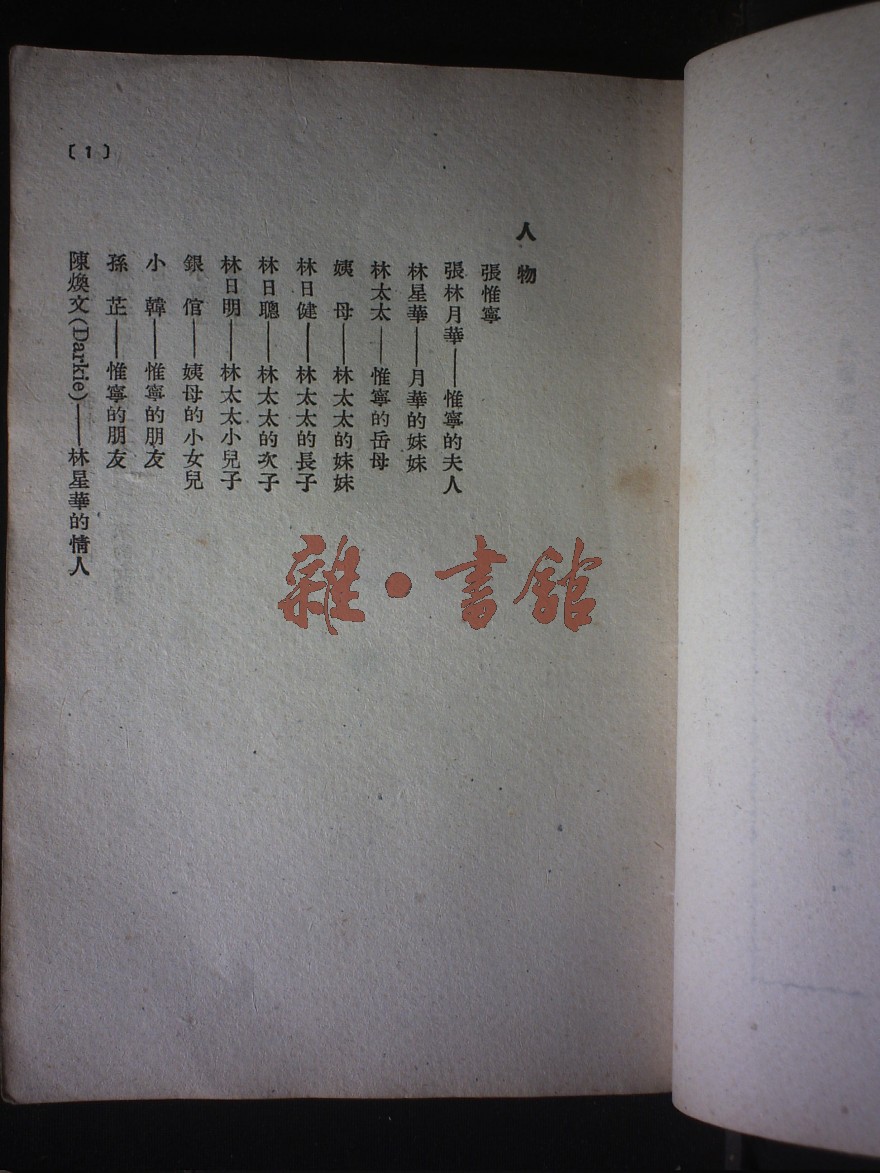 人物
張惟寧
張林月華——惟寧的夫人
林星華——月華的妹妹
林太太——惟寧的岳母
姨母——林太太的妹妹
林日健——林太太的長子
林日聰——林太太的次子
林日明——林太太小兒子
銀倌——姨母的小女兒
小韓——惟寧的朋友
孫芷——惟寧的朋友
陳煥文(Darkie)——林星華的情人
〔1〕
雜·書館